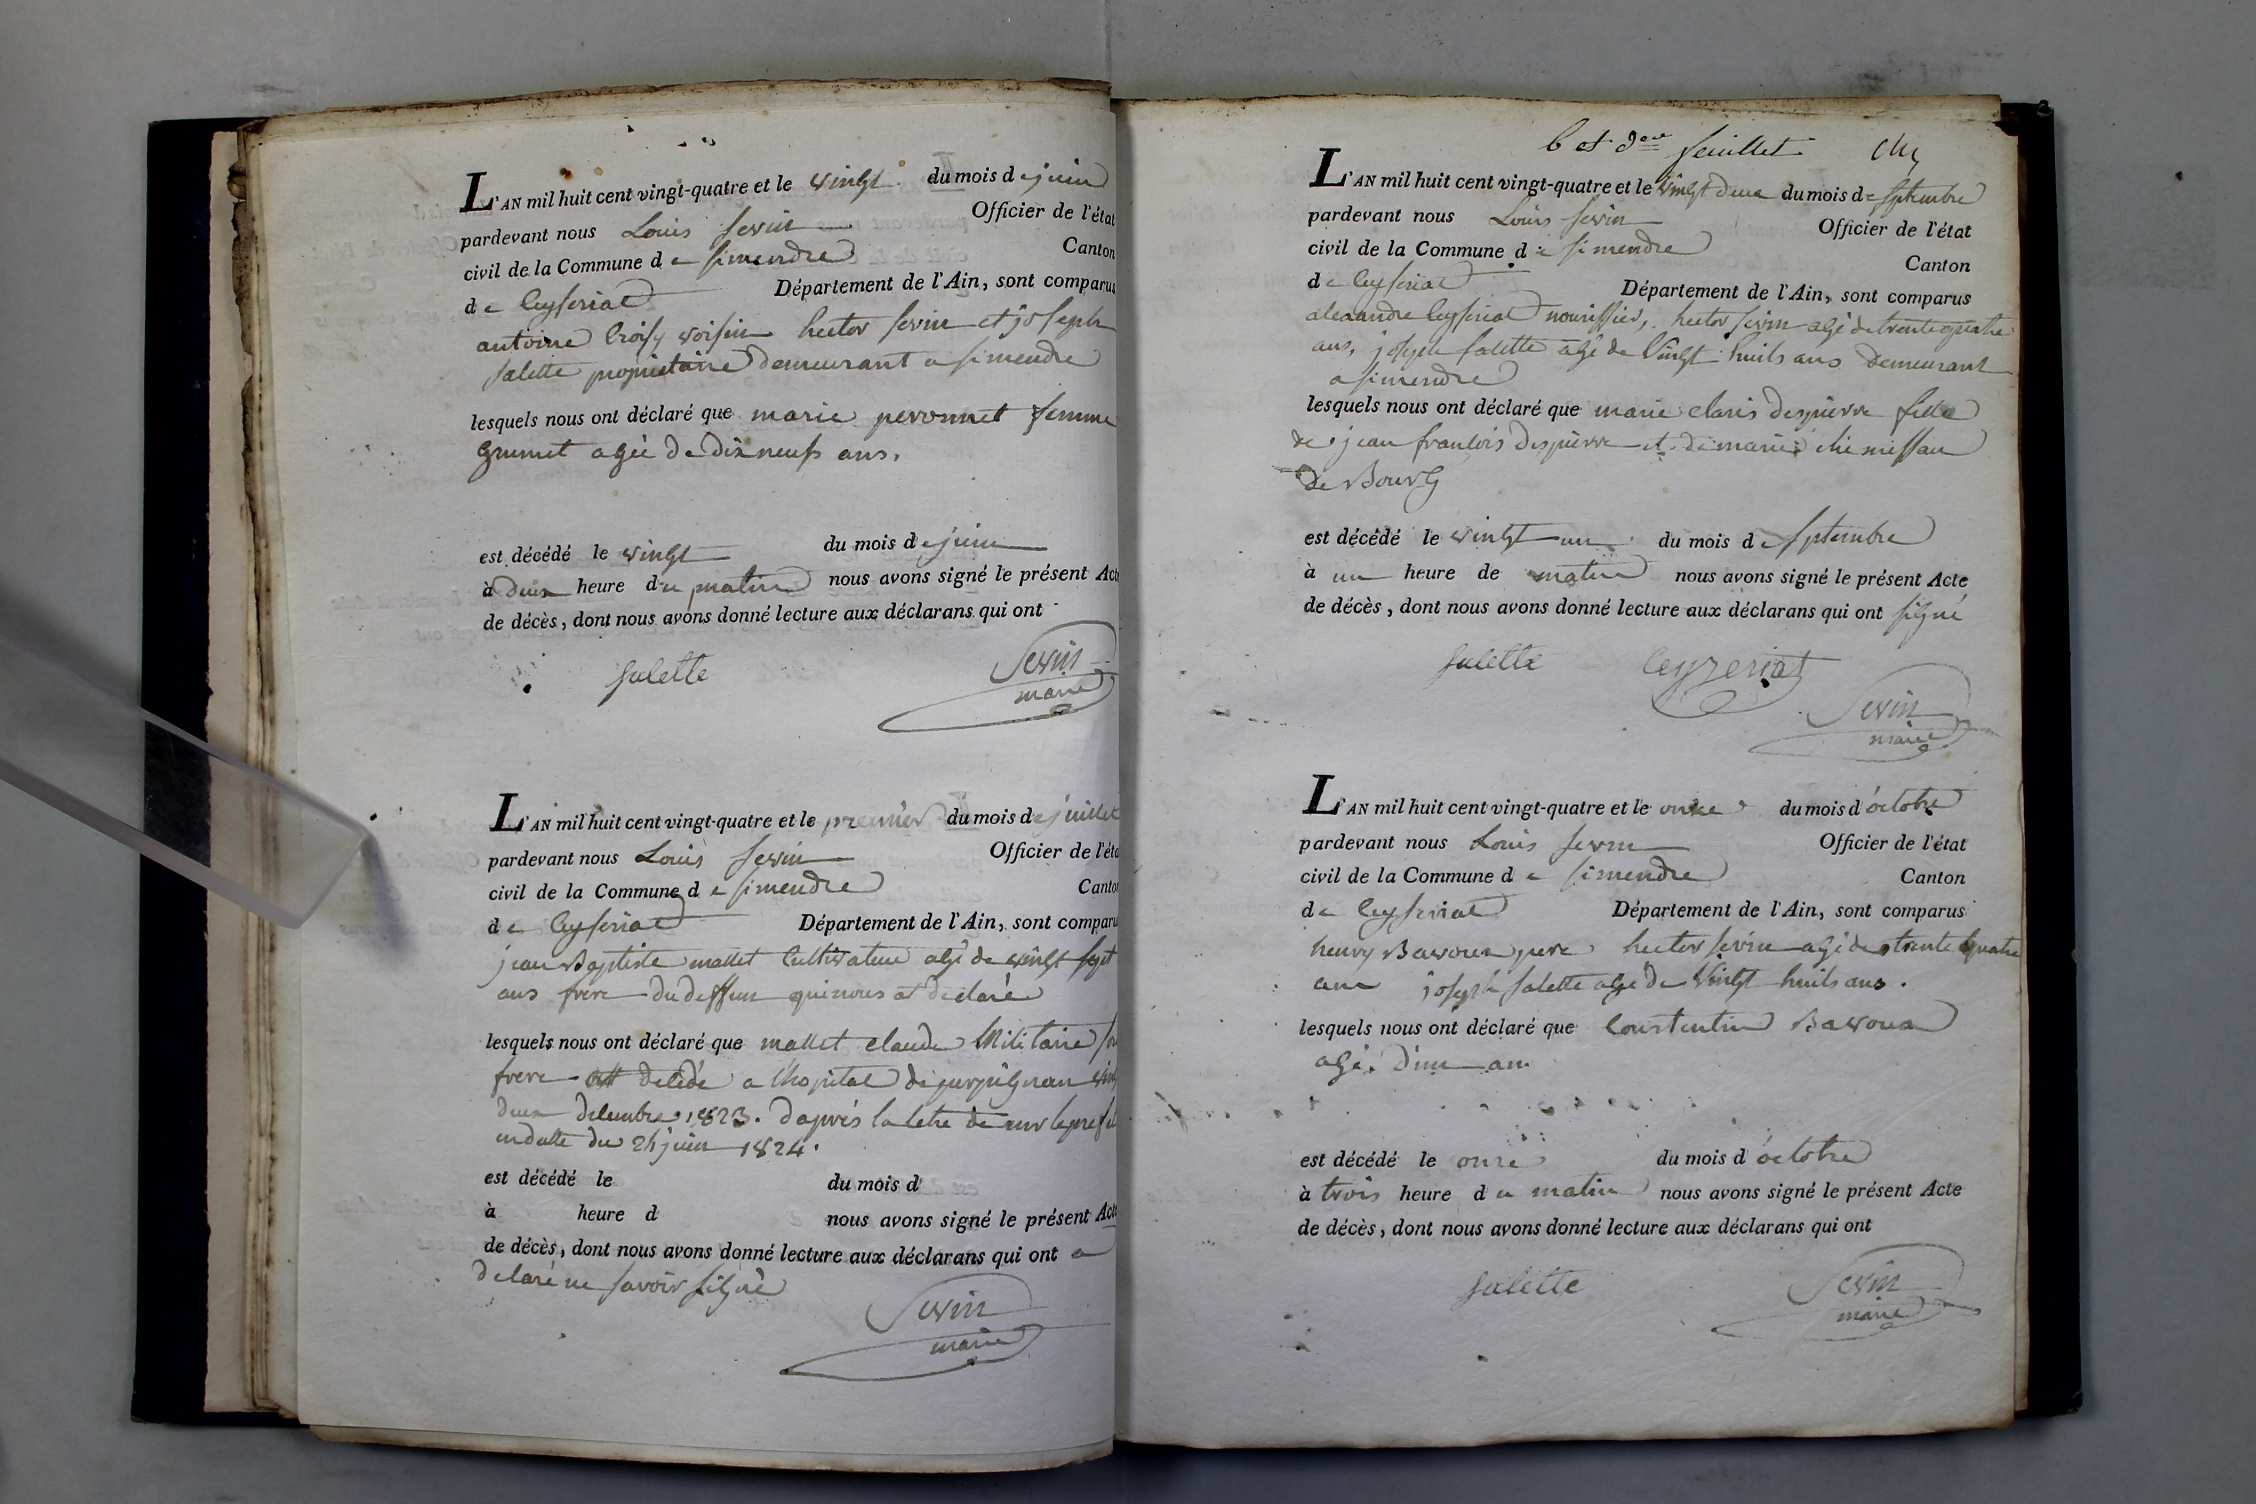 L'AN mil huit cent vingt-quatre et le vingt du mois de juin
pardevant nous Louis sevin Officier de l'état
civil de la Commune de simendre Canton
de Ceyseriat Département de l'Ain, sont comparus
antoine Croisy voisin hector sevin et joseph
salette propriétaire demeurant a simendre
lesquels nous ont déclaré que marie peronnet femme
Grumet agée de dix neufs ans,
est décédé le vingt du mois de juin
à deux heure du matin nous avons signé le présent Acte
de décès, dont nous avons donné lecture aux déclarans qui ont
salette Sevin
maire
L'AN mil huit cent vingt-quatre et le premier du mois de juillet
pardevant nous Louis sevin Officier de l'éta
civil de la Commune de simendre Canton
de Ceyseriat Département de l'Ain, sont comparu
jean Baptiste mallet Cultivateur agé de vingt sept
ans frere du deffun qui nous a declaré
lesquels nous ont déclaré que mallet claude Militaire
frere decedé a lhopital de perpignan
deux decembre 1823. daprés la letre de
en datte du 24 juin 1824.
est décédé le du mois d
à heure d nous avons signé le présent Acte
de décès, dont nous avons donné lecture aux déclarans qui ont a
declaré ne savoir signé
Sevin
maire
6 et dere feuillet
L'AN mil huit cent vingt-quatre et le vingt deux du mois de septembre
pardevant nous Louis sevin Officier de l'état
civil de la Commune de simendre Canton
de Ceyseriat Département de l'Ain, sont comparus
alexandre Ceyseriat nourissier, hector sevin agé de trente quatre
ans, joseph salette agé de Vingt huits ans demeurant
a simendre
lesquels nous ont déclaré que marie claris despierre fille
de jean francois despierre et de marie
de Bourg
est décédé le vingt un du mois de septembre
à un heure de matin nous avons signé le présent Acte
de décès, dont nous avons donné lecture aux déclarans qui ont signé
salette Ceyzeriat
Sevin
maire
L'AN mil huit cent vingt-quatre et le onze du mois d'octobre
pardevant nous Louis sevin Officier de l'état
civil de la Commune de simendre Canton
de Ceyseriat Département de l'Ain, sont comparus
henry Bavoux pere hector sevin agé de trente quatre
ans joseph salette agé de Vingt huits ans.
lesquels nous ont déclaré que Constentin Bavoux
agé d'un an
est décédé le onze du mois d'octobre
à trois heure du matin nous avons signé le présent Acte
de décès, dont nous avons donné lecture aux déclarans qui ont
salette Sevin
maire